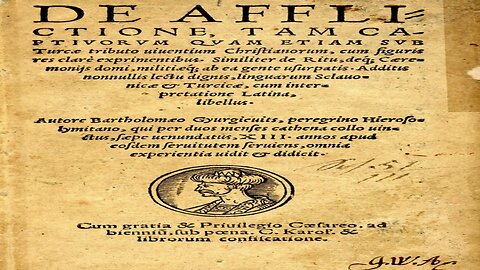 DE AFFLI-
CTIONE, TAM CA-
PTIVORVM QVAM ETIAM SVB
Turcæ tributo uiuentium Christianorum, cum figuris
res clarè exprimentibus. Similiter de Ritu, deq; Cære-
monijs domi, militiæq; ab ea gente usurpatis. Additis
nonnullis lectu dignis, linguarum Sclauo-
nicæ & Turcicæ, cum inter-
pretatione Latina,
libellus.
Autore Bartholomæo Gyurgieuits, peregrino Hieroso-
lymitano, qui per duos menses cathena collo uin-
ctus, sæpe uenundatus, XIII. annos apud
eosdem seruitutem seruiens, omnia
experientia uidit & didicit.
Cum gratia & Priuilegio Cæsareo, ad
bienniũ, sub pœna. C. Karol. &
librorum confiscatione.
g.W.A.